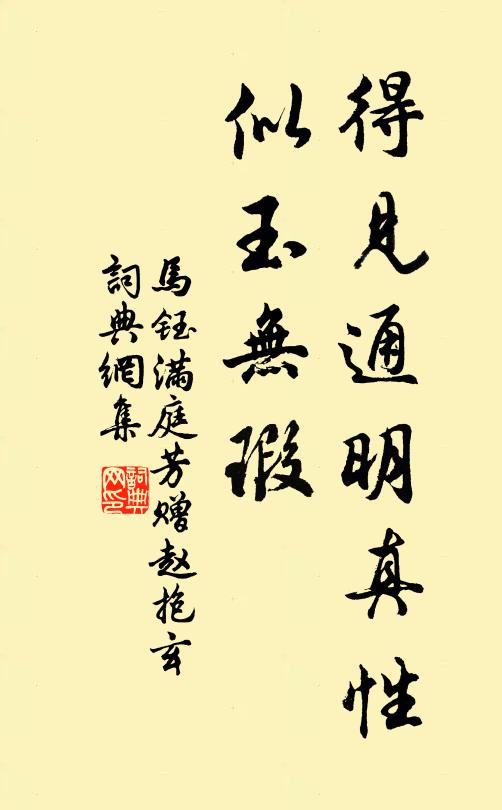 得見通明真性
似玉無瑕
馬鈺满庭芳赠赵抱玄
詞典網集
詞典网印